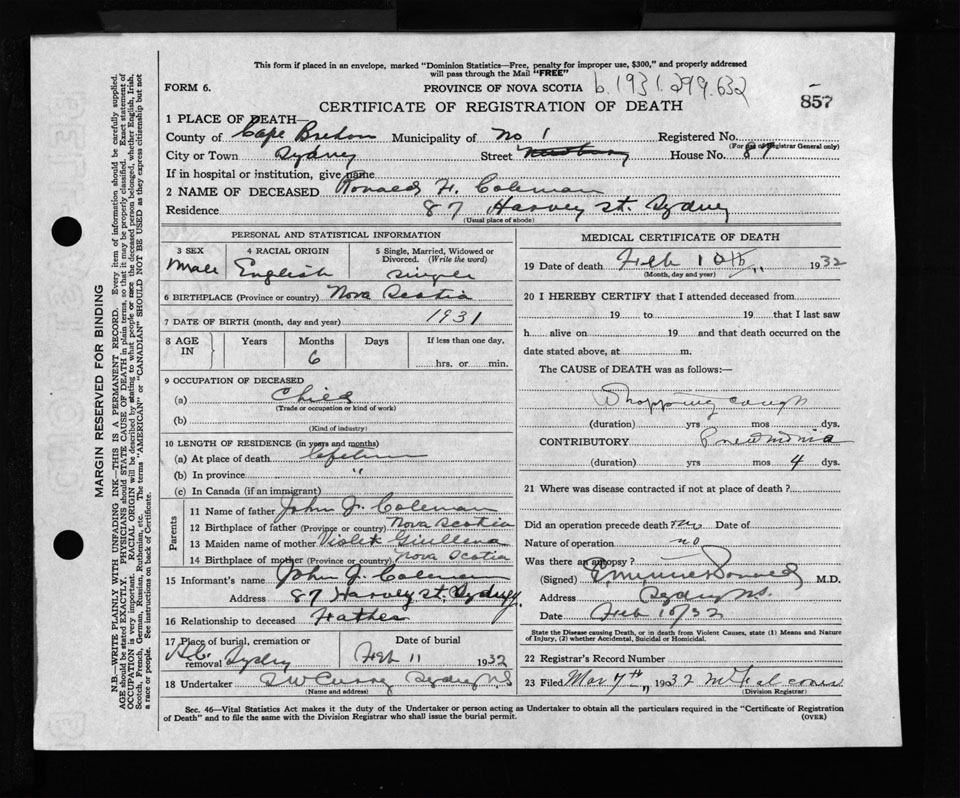 This form if placed in an envelope, marked "Dominion Statistics—Free, penalty for improper use, $300," and properly addressed
will pass through the Mail "FREE"
FORM 6.
PROVINCE OF NOVA SCOTIA b. 1931. 299.632
CERTIFICATE OF REGISTRATION OF DEATH
857
1 PLACE OF DEATH—
County of Cape Breton Municipality of No 1 Registered No.
(For use of Registrar General only)
City or Town Sydney Street House No. 87
If in hospital or institution, give name
2 NAME OF DECEASED Ronald F. Coleman
Residence 87 Harvey St. Sydney
(Usual place of abode)
PERSONAL AND STATISTICAL INFORMATION
3 SEX Male
4 RACIAL ORIGIN English
5 Single, Married, Widowed or Divorced. (Write the word) Single
6 BIRTHPLACE (Province or country) Nova Scotia
7 DATE OF BIRTH (month, day and year) 1931
8 AGE IN Years Months 6 Days If less than one day.
hrs. or min.
9 OCCUPATION OF DECEASED
(a) Child
(Trade or occupation or kind of work)
(b)
(Kind of industry)
10 LENGTH OF RESIDENCE (in years and months)
(a) At place of death lifetime
(b) In province "
(c) In Canada (if an immigrant)
Parents
11 Name of father John J. Coleman
12 Birthplace of father (Province or country) Nova Scotia
13 Maiden name of mother Violet
14 Birthplace of mother (Province or country) Nova Scotia
15 Informant's name John J. Coleman
Address 87 Harvey St. Sydney
16 Relationship to deceased Father
17 Place of burial, cremation or
removal Sydney
Date of burial
Feb 11 1932
18 Undertaker Sydney N.S
(Name and address)
MEDICAL CERTIFICATE OF DEATH
19 Date of death Feb 10th 1932
(Month, day and year)
20 I HEREBY CERTIFY that I attended deceased from
19 to 19 that I last saw
h alive on 19 and that death occurred on the
date stated above, at m.
The CAUSE of DEATH was as follows:—
Whopping cough
(duration) yrs mos dys.
CONTRIBUTORY Pneumonia
(duration) yrs mos 4 dys.
21 Where was disease contracted if not at place of death ?
Did an operation precede death no Date of
Nature of operation no
Was there an autopsy ?
(Signed) M.D.
Address Sydney N.S.
Date Feb 10/32
State the Disease causing Death, or in death from Violent Causes, state (1) Means and Nature
of Injury, (2) whether Accidental, Suicidal or Homicidal.
22 Registrar's Record Number
23 Filed Mar 7th 1932
(Division Registrar)
Sec. 46—Vital Statistics Act makes it the duty of the Undertaker or person acting as Undertaker to obtain all the particulars required in the "Certificate of Registration
of Death" and to file the same with the Division Registrar who shall issue the burial permit.
(OVER)
MARGIN RESERVED FOR BINDING
N.B.—WRITE PLAINLY WITH UNFADING INK—THIS IS A PERMANENT RECORD. Every item of information should be carefully supplied.
AGE should be stated EXACTLY. PHYSICIANS should STATE CAUSE OF DEATH in plain terms, so that it may be properly classified. Exact statement of
OCCUPATION is very important. RACIAL ORIGIN will be described by stating to what people or race the deceased person belonged, whether English, Irish,
Scotch, French, German, Russian, Ruthenian, etc. The terms "AMERICAN" or "CANADIAN" SHOULD NOT BE USED as they express citizenship but not
a race or people. See instructions on back of Certificate.